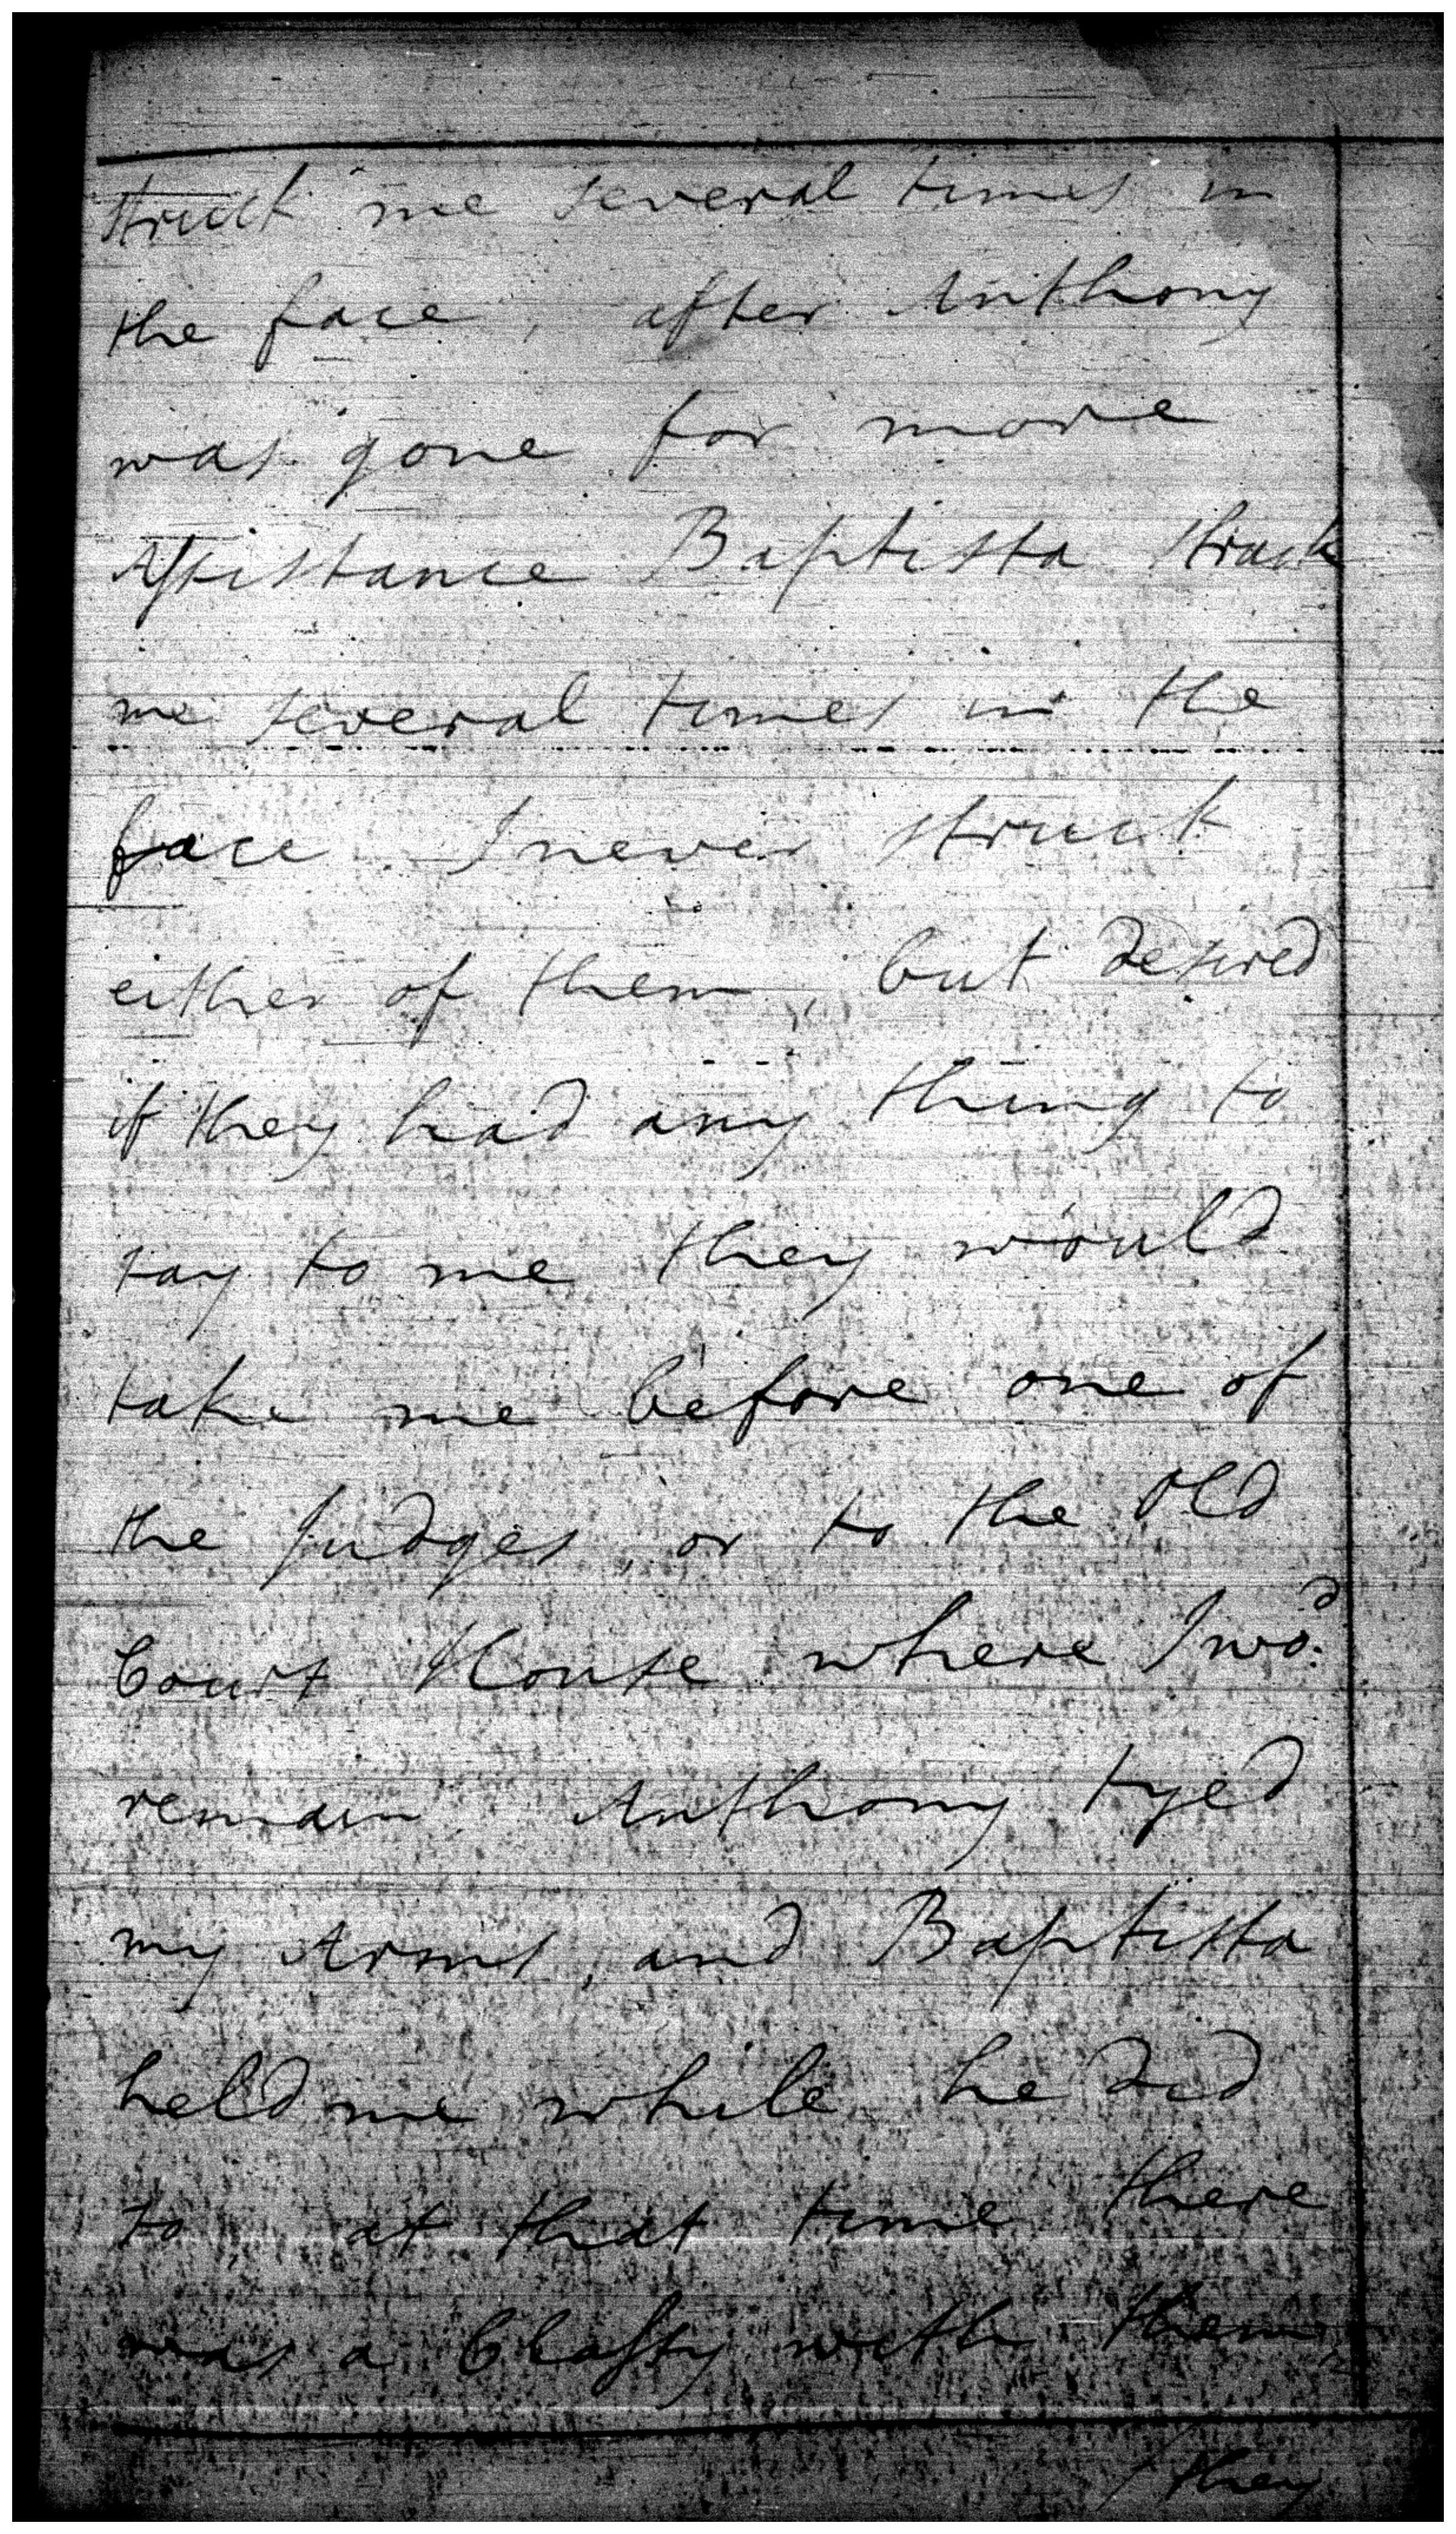 struck me several times in
the face, after Anthony
was gone for more
Assistance Baptista struck
me several times in the
face I never struck
either of them, but desired
if they had any thing to
say to me they would
take me before one of
the Judges, or to the Old
Court House where I wo.d
remain Anthony tyed
my Arms, and Baptista
held me while he did
so, at that time there
was a Classy with them
they